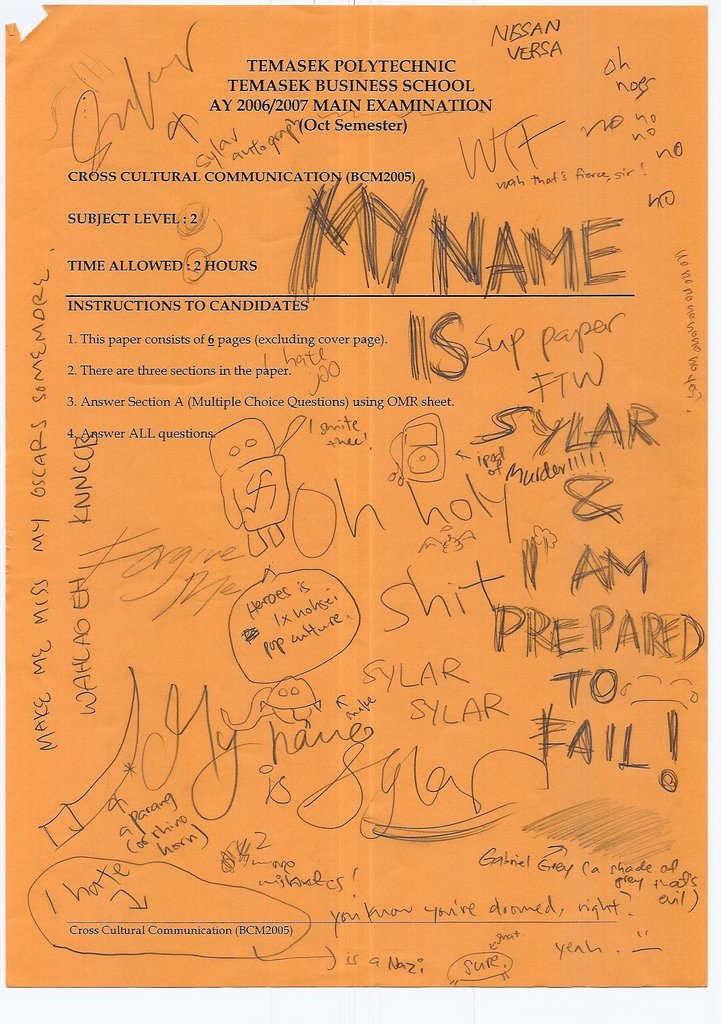 NISSAN
VERSA
TEMASEK POLYTECHNIC
TEMASEK BUSINESS SCHOOL
AY 2006/2007 MAIN EXAMINATION
(Oct Semester)
oh
noes
no no
no
no
no
Sylar
autograph
WTF
wah that's fierce, sir!
CROSS CULTURAL COMMUNICATION (BCM2005)
SUBJECT LEVEL : 2
TIME ALLOWED : 2 HOURS
MY NAME
IS
SYLAR
&
I AM
PREPARED
TO
FAIL!
INSTRUCTIONS TO CANDIDATES
1. This paper consists of 6 pages (excluding cover page).
2. There are three sections in the paper.
3. Answer Section A (Multiple Choice Questions) using OMR sheet.
4. Answer ALL questions.
I hate
Sup paper
FTW
I smite
thee!
ipod
of
Murder!!!!!
Oh holy
shit
MAKE ME MISS MY OSCARS SOMEMORE.
WAHLAO EH KNNCCB
Forgive
Me
Heroes is
pop culture.
SYLAR
SYLAR
My name
is
Sylar
a parang
(or rhino
horn)
2
mistakes!
Gabriel Grey (a shade of
grey that's
evil)
I hate
you know you're doomed, right?
Cross Cultural Communication (BCM2005)
is a Nazi
great.
sure.
yeah.